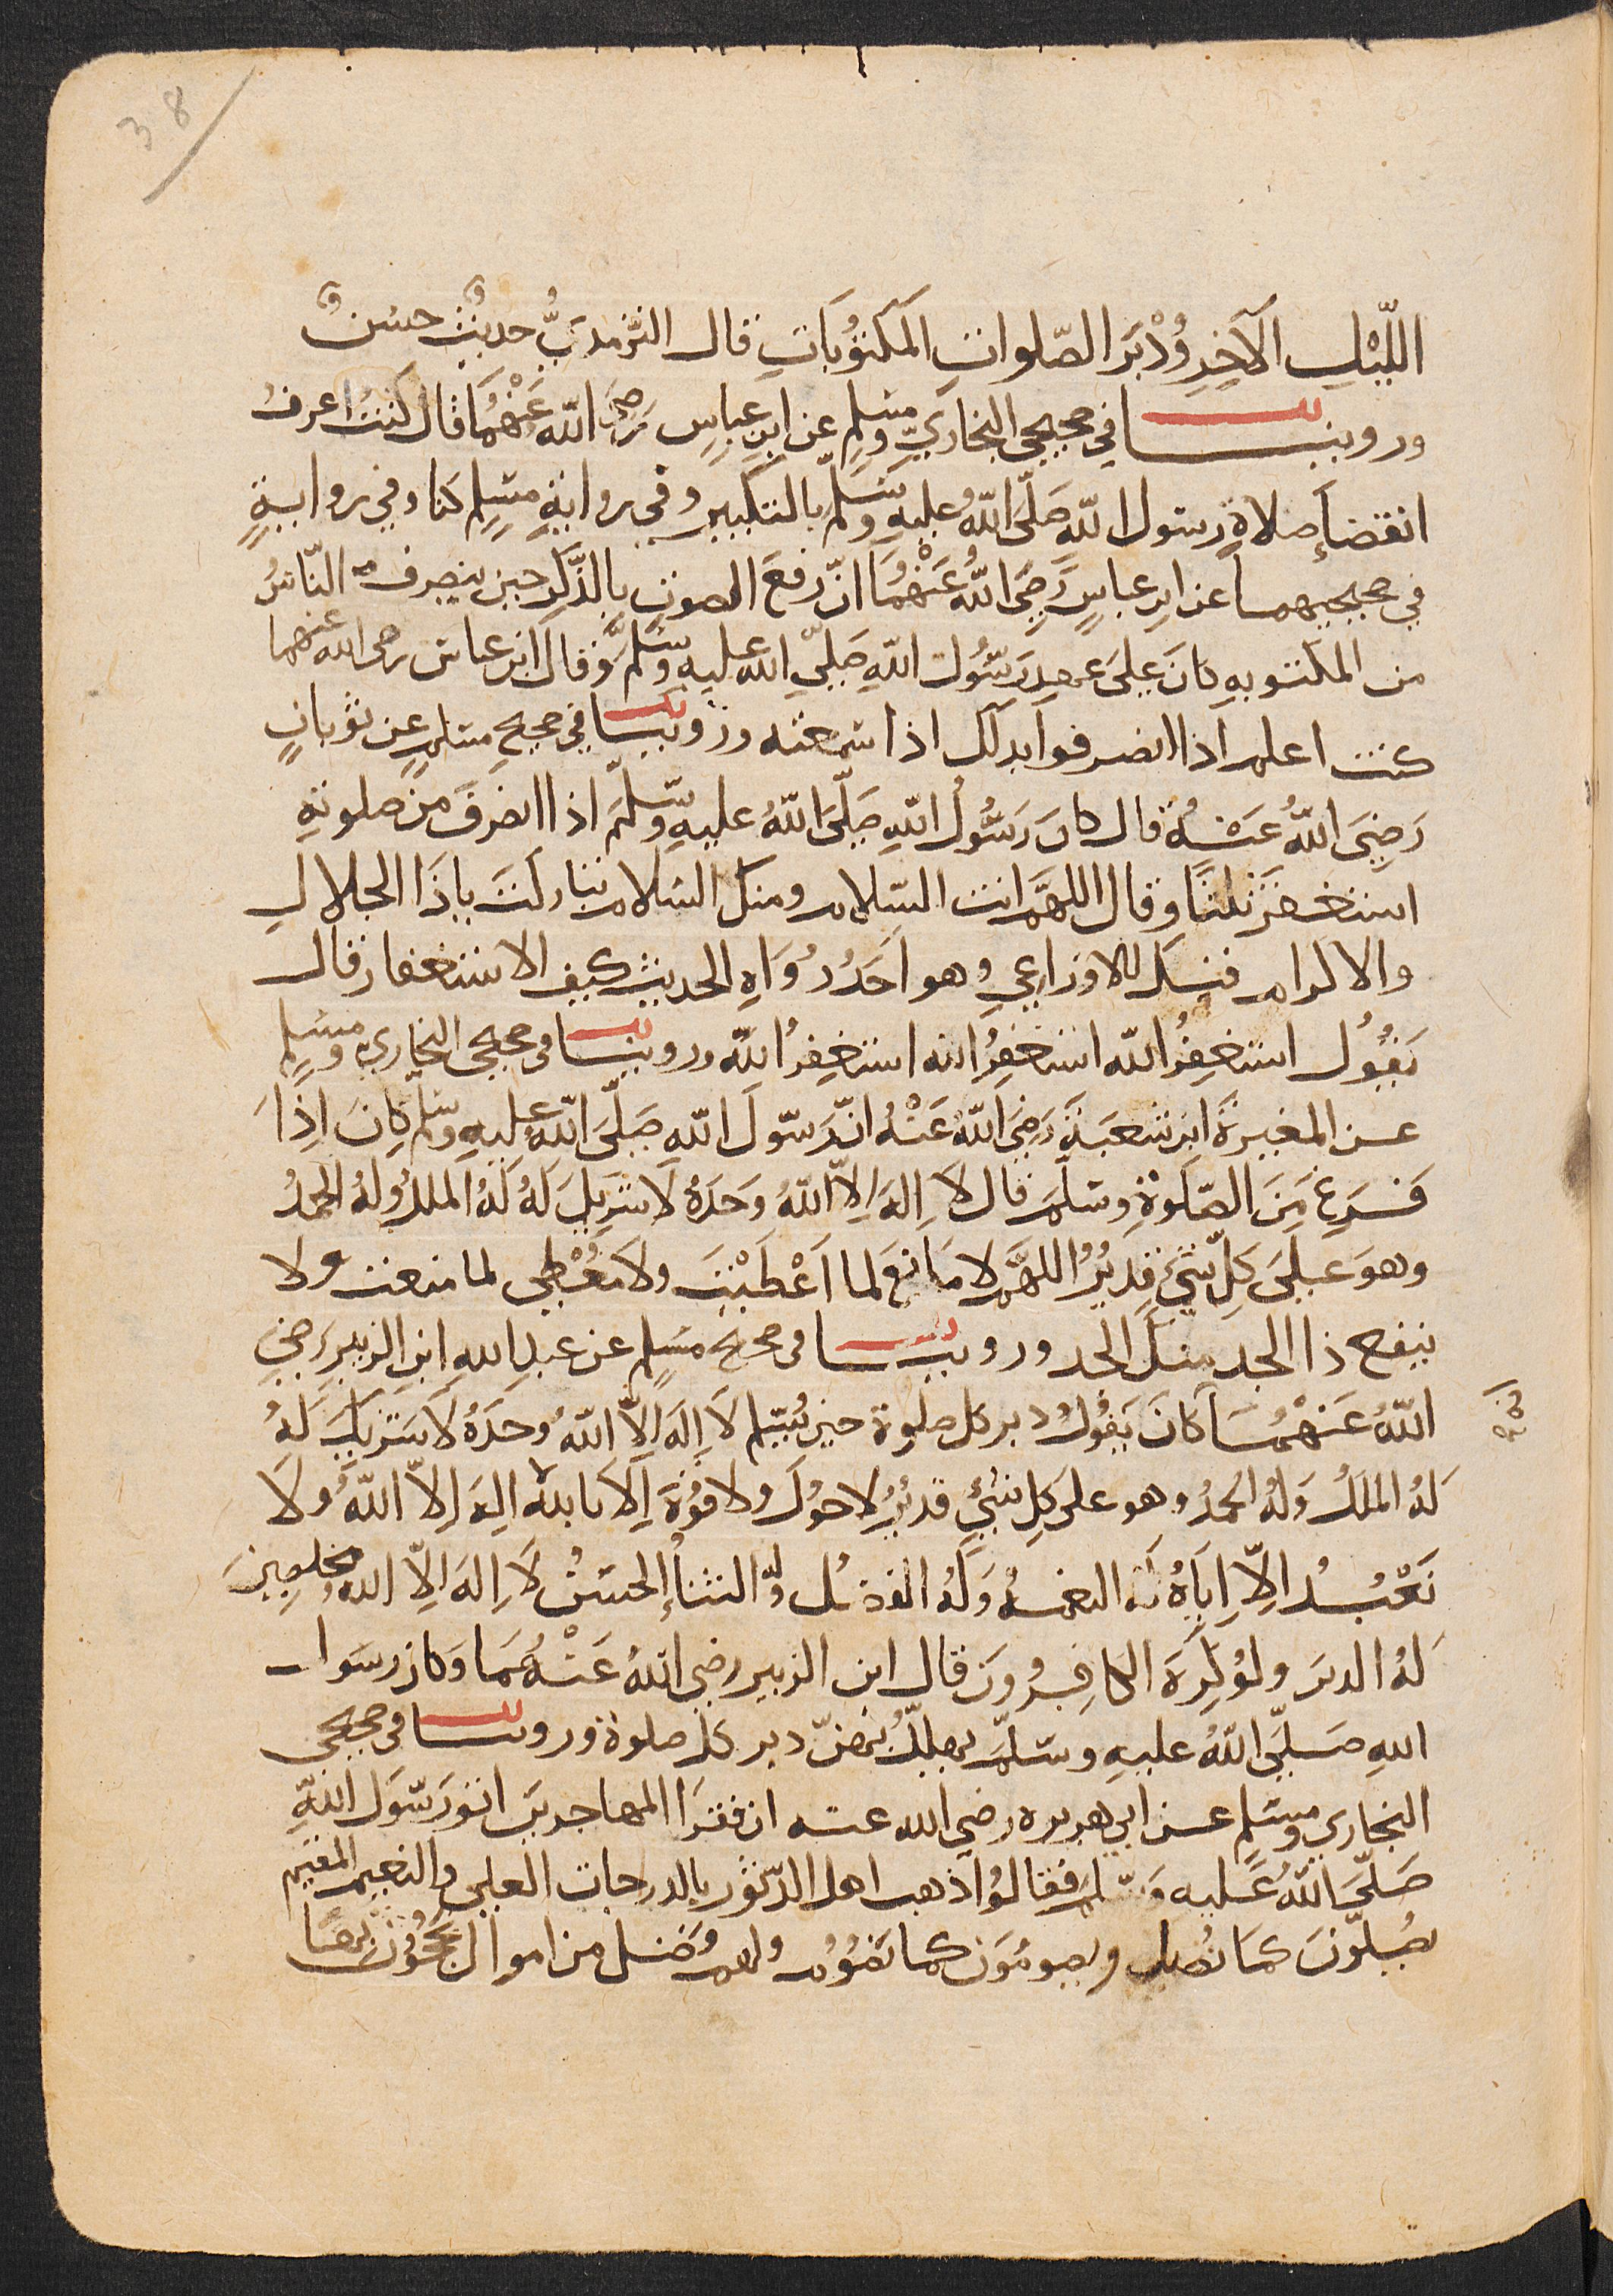 38
اللَّيْلِ الآخِرِ وُدْبَر الصّلوات المكتُوبَاتِ قال الترمدىُّ حديثٌ حسَنٌ
وروينا في صحيحي البخاريّ ومسلمٍ عن ابن عباسٍ رضي الله عَنْهُمَا قال كنت اعرف
انقضآءِ صلاةِ رسول الله صَلَّى اللهُ عليه وسَلم بالتكبير وفي رواية مسلمٍ كنا وفي روايةٍ
في صحيحيهما عن ابن عباسٍ رَضِيَ اللهُ عَنْهُمَا انّ رفعَ الصوت بالذّكر حين ينصرف النّاسُ
من المكتوبه كانَ على عهد رَسُول الله صَلّى الله عليه وسَلم وقال ابن عباس رضي الله عنهما
كنت اعلم اذا انصرفوا بدلك اذا سمعته وروينا في صحيح مسلمٍ عن ثوبانٍ
رَضِيَ اللهُ عَنْهُ قال كان رَسُولُ اللهِ صَلَّى اللهُ عليه وسَلَّمَ اذا انصرفَ من صلوتهِ
استغفرَ ثلثًا وقال اللهمَّ انت السّلام ومنك السّلام تباركتَ ياذَا الجلالِ
والاكرام فقيل للاوزاعي وهو احَدُ رُوَاهِ الحديث كيف الاستغفار قال
يَقُولُ استغفِرُ الله استغفِرُ الله استغفِرُ الله وروينا في صحيحي البخاري ومسلمٍ
عن المغيرةَ ابن شعبَةَ رَضِيَ اللهُ عَنْهُ انّ رَسُولَ الله صَلَّى الله عليه وسلم كانَ اِذَا
فَرَغَ مِنَ الصّلَوةِ وسَلّمَ قال لا اِلهَ اِلاّ اللهُ وَحدَهُ لا شَرِيكَ لَهُ لَهُ الملكُ وَلهُ الحمدُ
وهوَ عَلَى كلِّ شَيْءٍ قَدِيرُ اللهمَّ لا مَانعَ لما اَعْطَيْتَ ولا مُعْطِيَ لما منعت ولا
ينفع ذا الجد منكَ الجد وروينا في صحيح مسلمٍ عن عبدِ اللهِ ابن الزبيرِ رَضي
اللهُ عَنْهُمَا كانَ يَقُولُ دبر كل صلوة حين يُسَلِم لا اِلهَ اِلاّ اللهُ وحدَهُ لا شَريكَ لَهُ
لَهُ الملكُ وَلهُ الحمدُ وهو على كلِ شيءٍ قديرُ لا حوْلَ ولا قوّةَ اِلا بالله لا اِلهَ اِلاّ اللهُ ولا
نَعْبُدُ اِلاّ اِيّاهُ لَه النعمه وَلَهُ الفضل وله الثنآءُ الحسنُ لا اِلهَ اِلاّ الله مخلصِينَ
لهُ الدين ولوْ كرِهَ الكافِرُونَ قال ابن الزبير رضي اللهُ عَنْهُمَا وكان رسول
اللهِ صَلَّى اللهُ عليهِ وسَلّمَ يهلّلُ بهنّ دبر كل صلوة وروينا في صحيحي
البخاري ومسلمٍ عن ابي هريره رضي الله عنه ان فقرَا المهاجرين اتو رَسُولَ اللهِ
صَلَّى اللهُ عَليه وسَلم فقالوُا ذهب اهل الدّثور بالدرجات العلي والنعيم المقيم
يصَلّونَ كمَا نُصلي ويصومُونَ كما نصُوُم ولهم فضل من اموال يحجُّونَ بها